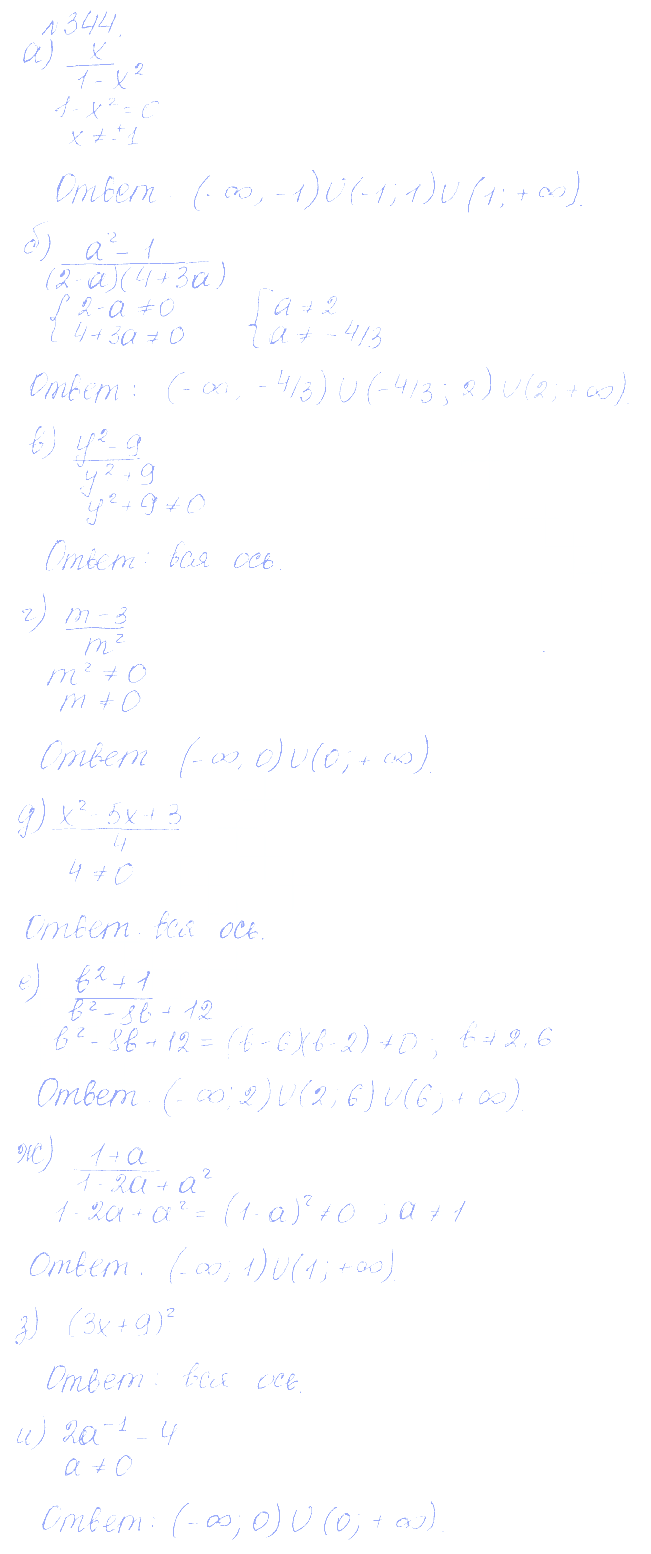 №344.
а) x
1 - x²
1 - x² = 0
x ≠ ±1
Ответ: (-∞, -1)∪(-1; 1)∪(1; +∞).
б) a² - 1
(2-a)(4+3a)
{ 2-a ≠ 0 { a ≠ 2
{ 4+3a ≠ 0 { a ≠ -4/3
Ответ: (-∞, -4/3)∪(-4/3; 2)∪(2; +∞).
в) y² - 9
y² + 9
y² + 9 ≠ 0
Ответ: вая ось.
г) m - 3
m²
m² ≠ 0
m ≠ 0
Ответ (-∞, 0)∪(0; +∞).
д) x² - 5x + 3
4
4 ≠ 0
Ответ. вся ось.
е) b² + 1
b² - 8b + 12
b² - 8b + 12 = (b-6)(b-2) ≠ 0; b ≠ 2,6
Ответ. (-∞; 2)∪(2, 6)∪(6, +∞).
ж) 1 + a
1 - 2a + a²
1 - 2a + a² = (1-a)² ≠ 0; a ≠ 1
Ответ. (-∞; 1)∪(1; +∞).
з) (3x+9)²
Ответ: вая ось.
и) 2a⁻¹ - 4
a ≠ 0
Ответ: (-∞; 0)∪(0; +∞).